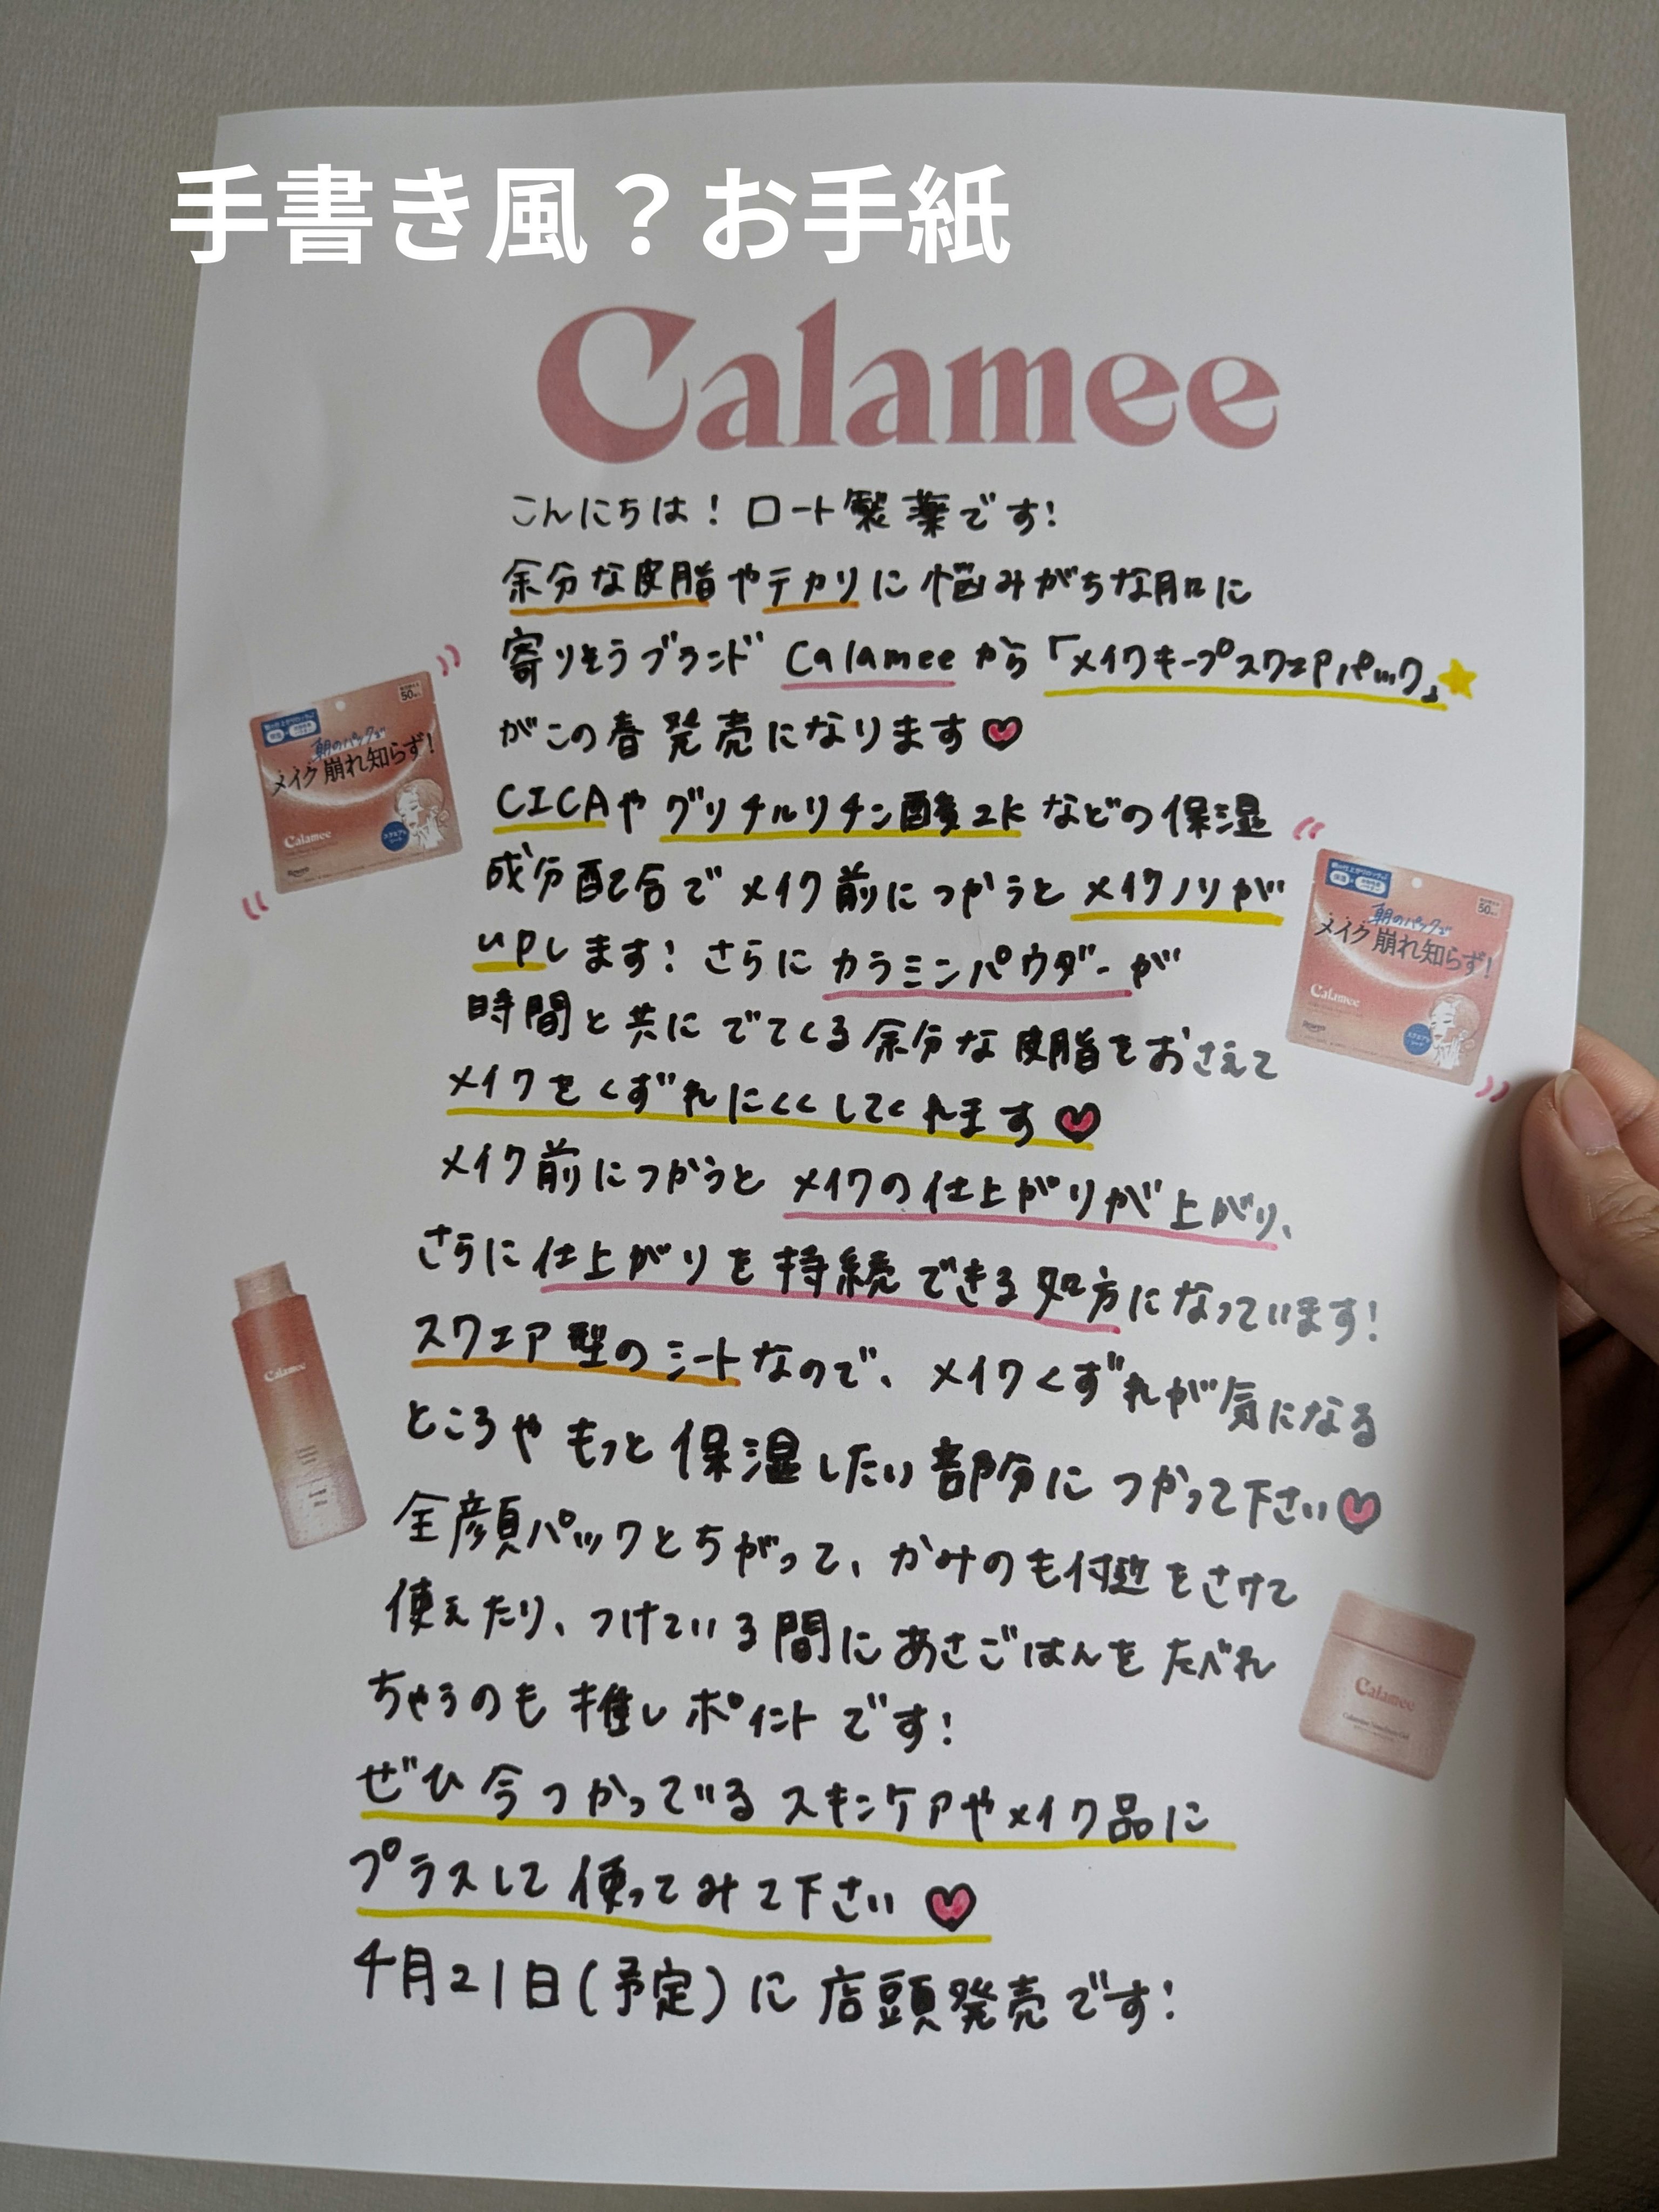 手書き風？お手紙
Calamee
こんにちは！ロート製薬です！
余分な皮脂やテカリに悩みがちな肌に
寄りそうブランド Calameeから「メイクキープスクエアパック」
がこの春発売になります
CICAやグリチルリチン酸2Kなどの保湿
成分配合でメイク前につかうとメイクノリが
UPします！さらにカラミンパウダーが
時間と共にでてくる余分な皮脂をおさえて
メイクをくずれにくくしてくれます
メイク前につかうとメイクの仕上がりが上がり、
さらに仕上がりを持続できる処方になっています！
スクエア型のシートなので、メイクくずれが気になる
ところやもっと保湿したい部分につかって下さい
全顔パックとちがって、かみのも付近をさけて
使えたり、つけている間にあさごはんをたべれ
ちゃうのも推しポイントです！
ぜひ今つかっているスキンケアやメイク品に
プラスして使ってみて下さい
4月21日(予定)に店頭発売です！
50
朝のパックで
メイク崩れ知らず！
Calamee
50
朝のパックで
メイク崩れ知らず！
Calamee
Calamee
Calamee